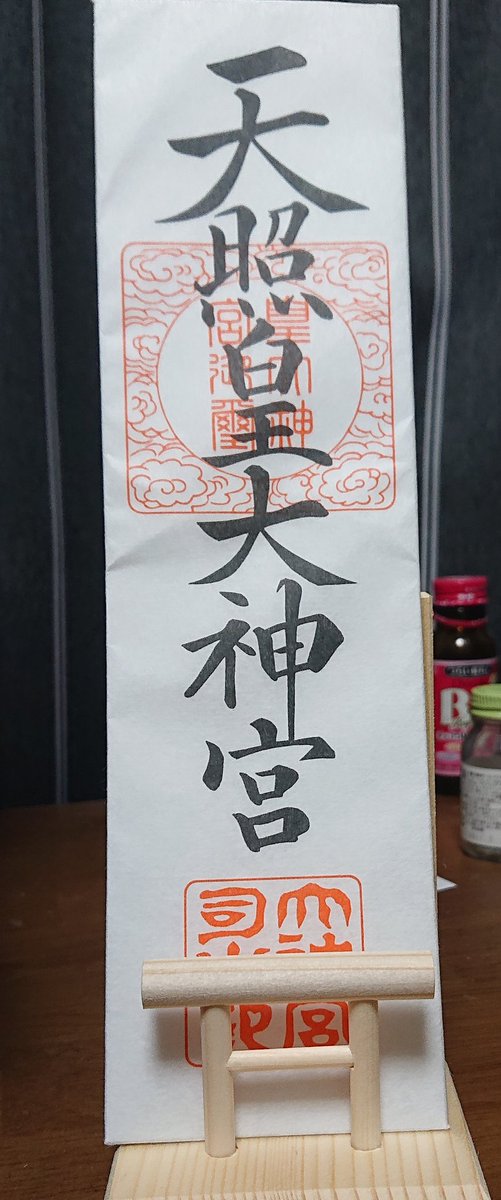 天照皇大神宮
皇大神
宮御璽
大神宮
司之印
B